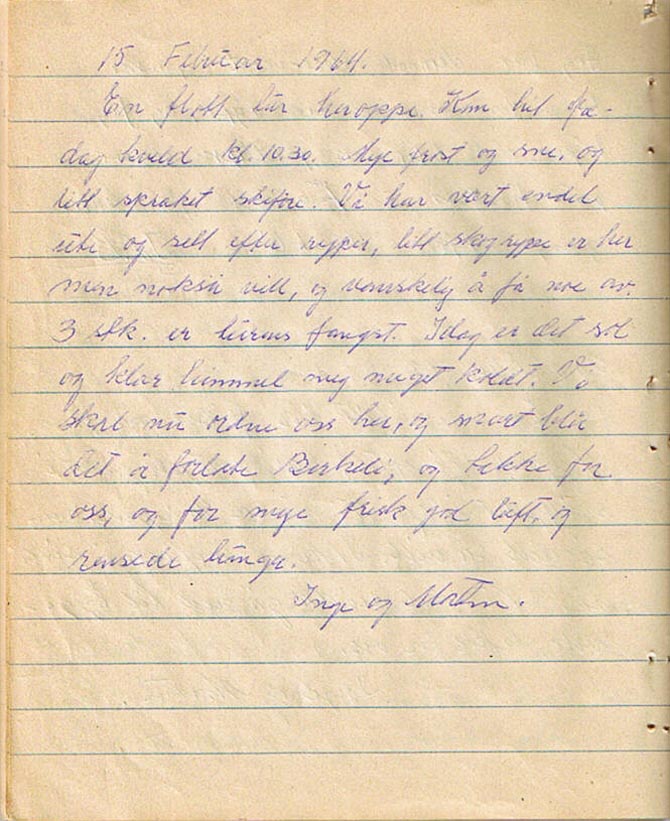 15 Februar 1964.
En flott tur heroppe. Kom hit fre-
dag kveld kl. 10.30. Mye frost og sne, og
litt sprøket skiføre. Vi har vært endel
ute og sett efter ryper, litt skogrype er her
men nokså vill, og vanskelig å få noe av.
3 stk. er turens fangst. Idag er det sol
og klar himmel meg meget koldt. Vi
skal nu ordne oss her, og snart blir
det å forlate Birkeli, og takke for
oss, og for mye frisk god luft, og
rensede lunger.
Inge og Morten.